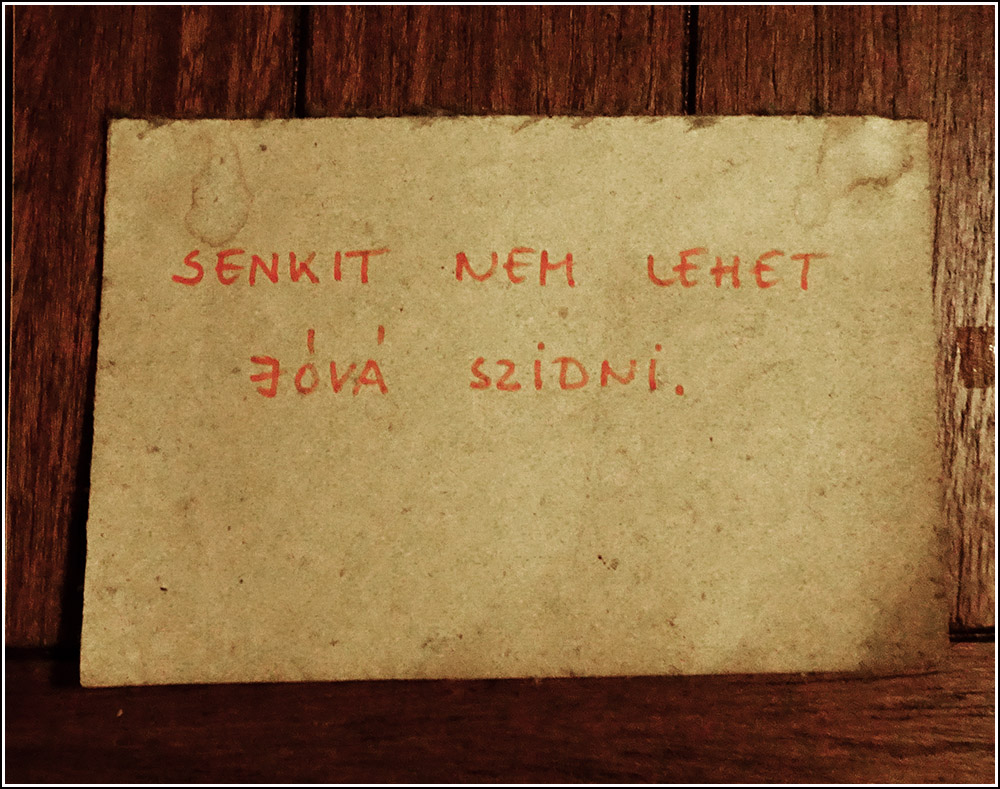 SENKIT NEM LEHET
JÓVÁ SZiDNi.